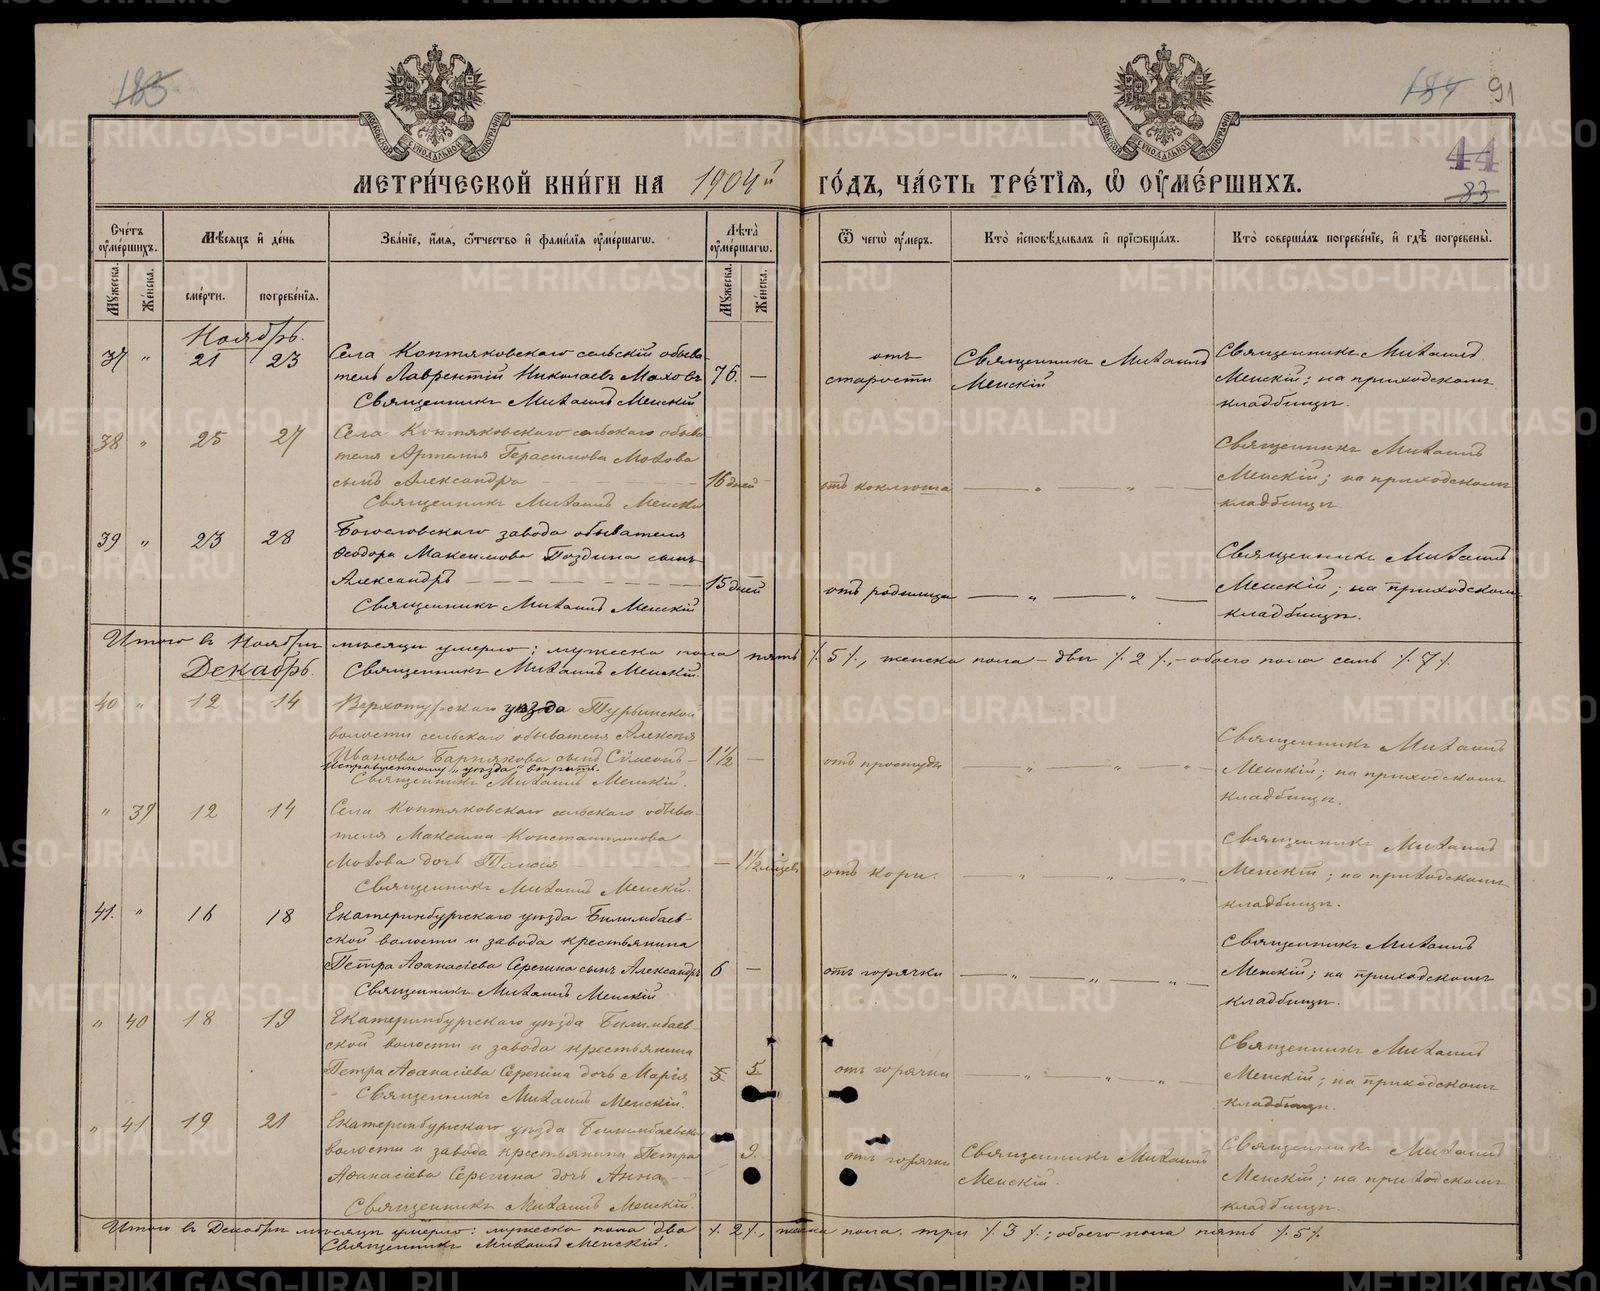 183
184 91
44
83
МОСКОВСКОЙ СѴНОДАЛЬНОЙ ТИПОГРАФІИ
МОСКОВСКОЙ СѴНОДАЛЬНОЙ ТИПОГРАФІИ
МЕТРИ́ЧЕСКОЙ КНИ́ГИ НА 1904й ГО́ДЪ, ЧА́СТЬ ТРЕ́ТІѦ, Ѡ ОУМЕ́РШИХЪ.
Счётъ оумершихъ.
Мѣсяцъ и день
Званіе, имя, отчество и фамилія оумершагѡ.
Лѣта оумершагѡ.
Ѿ чегѡ оумеръ.
Кто исповѣдывалъ и пріѡбщалъ.
Кто совершалъ погребеніе, и гдѣ погребены.
Мужеска.
Женска.
смерти.
погребенія.
Мужеска.
Женска.
Ноябрь.
37 " 21 23
Села Коптяковскаго сельскій обыва-
тель Лаврентій Николаевъ Моховъ
Священникъ Михаилъ Менскій
76. —
отъ
старости
Священникъ Михаилъ
Менскій
Священникъ Михаилъ
Менскій; на приходскомъ
кладбищѣ.
38 " 25 27
Села Коптяковскаго сельскаго обыва
теля Артемія Герасимова Мохова
сынъ Александръ
Священникъ Михаилъ Менскій
16 дней
отъ коклюша
— " — " —
Священникъ Михаилъ
Менскій; на приходскомъ
кладбищѣ.
39 " 23 28
Богословскаго завода обывателя
Ѳеодора Максимова Поздина сынъ
Александръ
Священникъ Михаилъ Менскій
15 дней
отъ родимца
— " — " —
Священникъ Михаилъ
Менскій; на приходскомъ
кладбищѣ.
Итого въ Ноябрѣ мѣсяцѣ умерло: мужеска пола пять ⁒ 5 ⁒, женска пола – двѣ ⁒ 2 ⁒, – обоего пола семь ⁒ 7 ⁒.
Декабрь. Священникъ Михаилъ Менскій.
40 " 12 14
Верхотурскаго уѣзда Турьинской
волости сельскаго обывателя Алексѣя
Иванова сынъ Сѷмеонъ –
Исправленному "уѣзда" вѣрить.
Священникъ Михаилъ Менскій.
1½ —
отъ простуды
— " — " — " —
Священникъ Михаилъ
Менскій; на приходскомъ
кладбищѣ.
" 39 12 14
Села Коптяковскаго сельскаго обыва-
теля Максима Константинова
Мохова дочь Таисія
Священникъ Михаилъ Менскій.
— 1½ мѣсяц
отъ кори.
— " — " — " —
Священникъ Михаилъ
Менскій; на приходскомъ
кладбищѣ.
41. " 16 18
Екатеринбургскаго уѣзда Билимбаев-
ской волости и завода крестьянина
Петра Аѳанасіева Серегина сынъ Александръ
Священникъ Михаилъ Менскій
6 —
отъ горячки
— " — " — " —
Священникъ Михаилъ
Менскій; на приходскомъ
кладбищѣ.
" 40 18 19
Екатеринбургскаго уѣзда Билимбаев-
ской волости и завода крестьянина
Петра Аѳанасіева Серегина дочь Марія
Священникъ Михаилъ Менскій.
5 5
отъ горячки
— " — " — " —
Священникъ Михаилъ
Менскій; на приходскомъ
кладбищѣ.
" 41 19 21
Екатеринбургскаго уѣзда Билимбаевской
волости и завода крестьянина Петра
Аѳанасіева Серегина дочь Анна
Священникъ Михаилъ Менскій.
9.
отъ горячки
Священникъ Михаилъ
Менскій.
Священникъ Михаилъ
Менскій; на приходскомъ
кладбищѣ.
Итого въ Декабрѣ мѣсяцѣ умерло: мужеска пола два ⁒ 2 ⁒, женска пола три ⁒ 3 ⁒; обоего пола пять ⁒ 5 ⁒
Священникъ Михаилъ Менскій.
METRIKI.GASO-URAL.RU